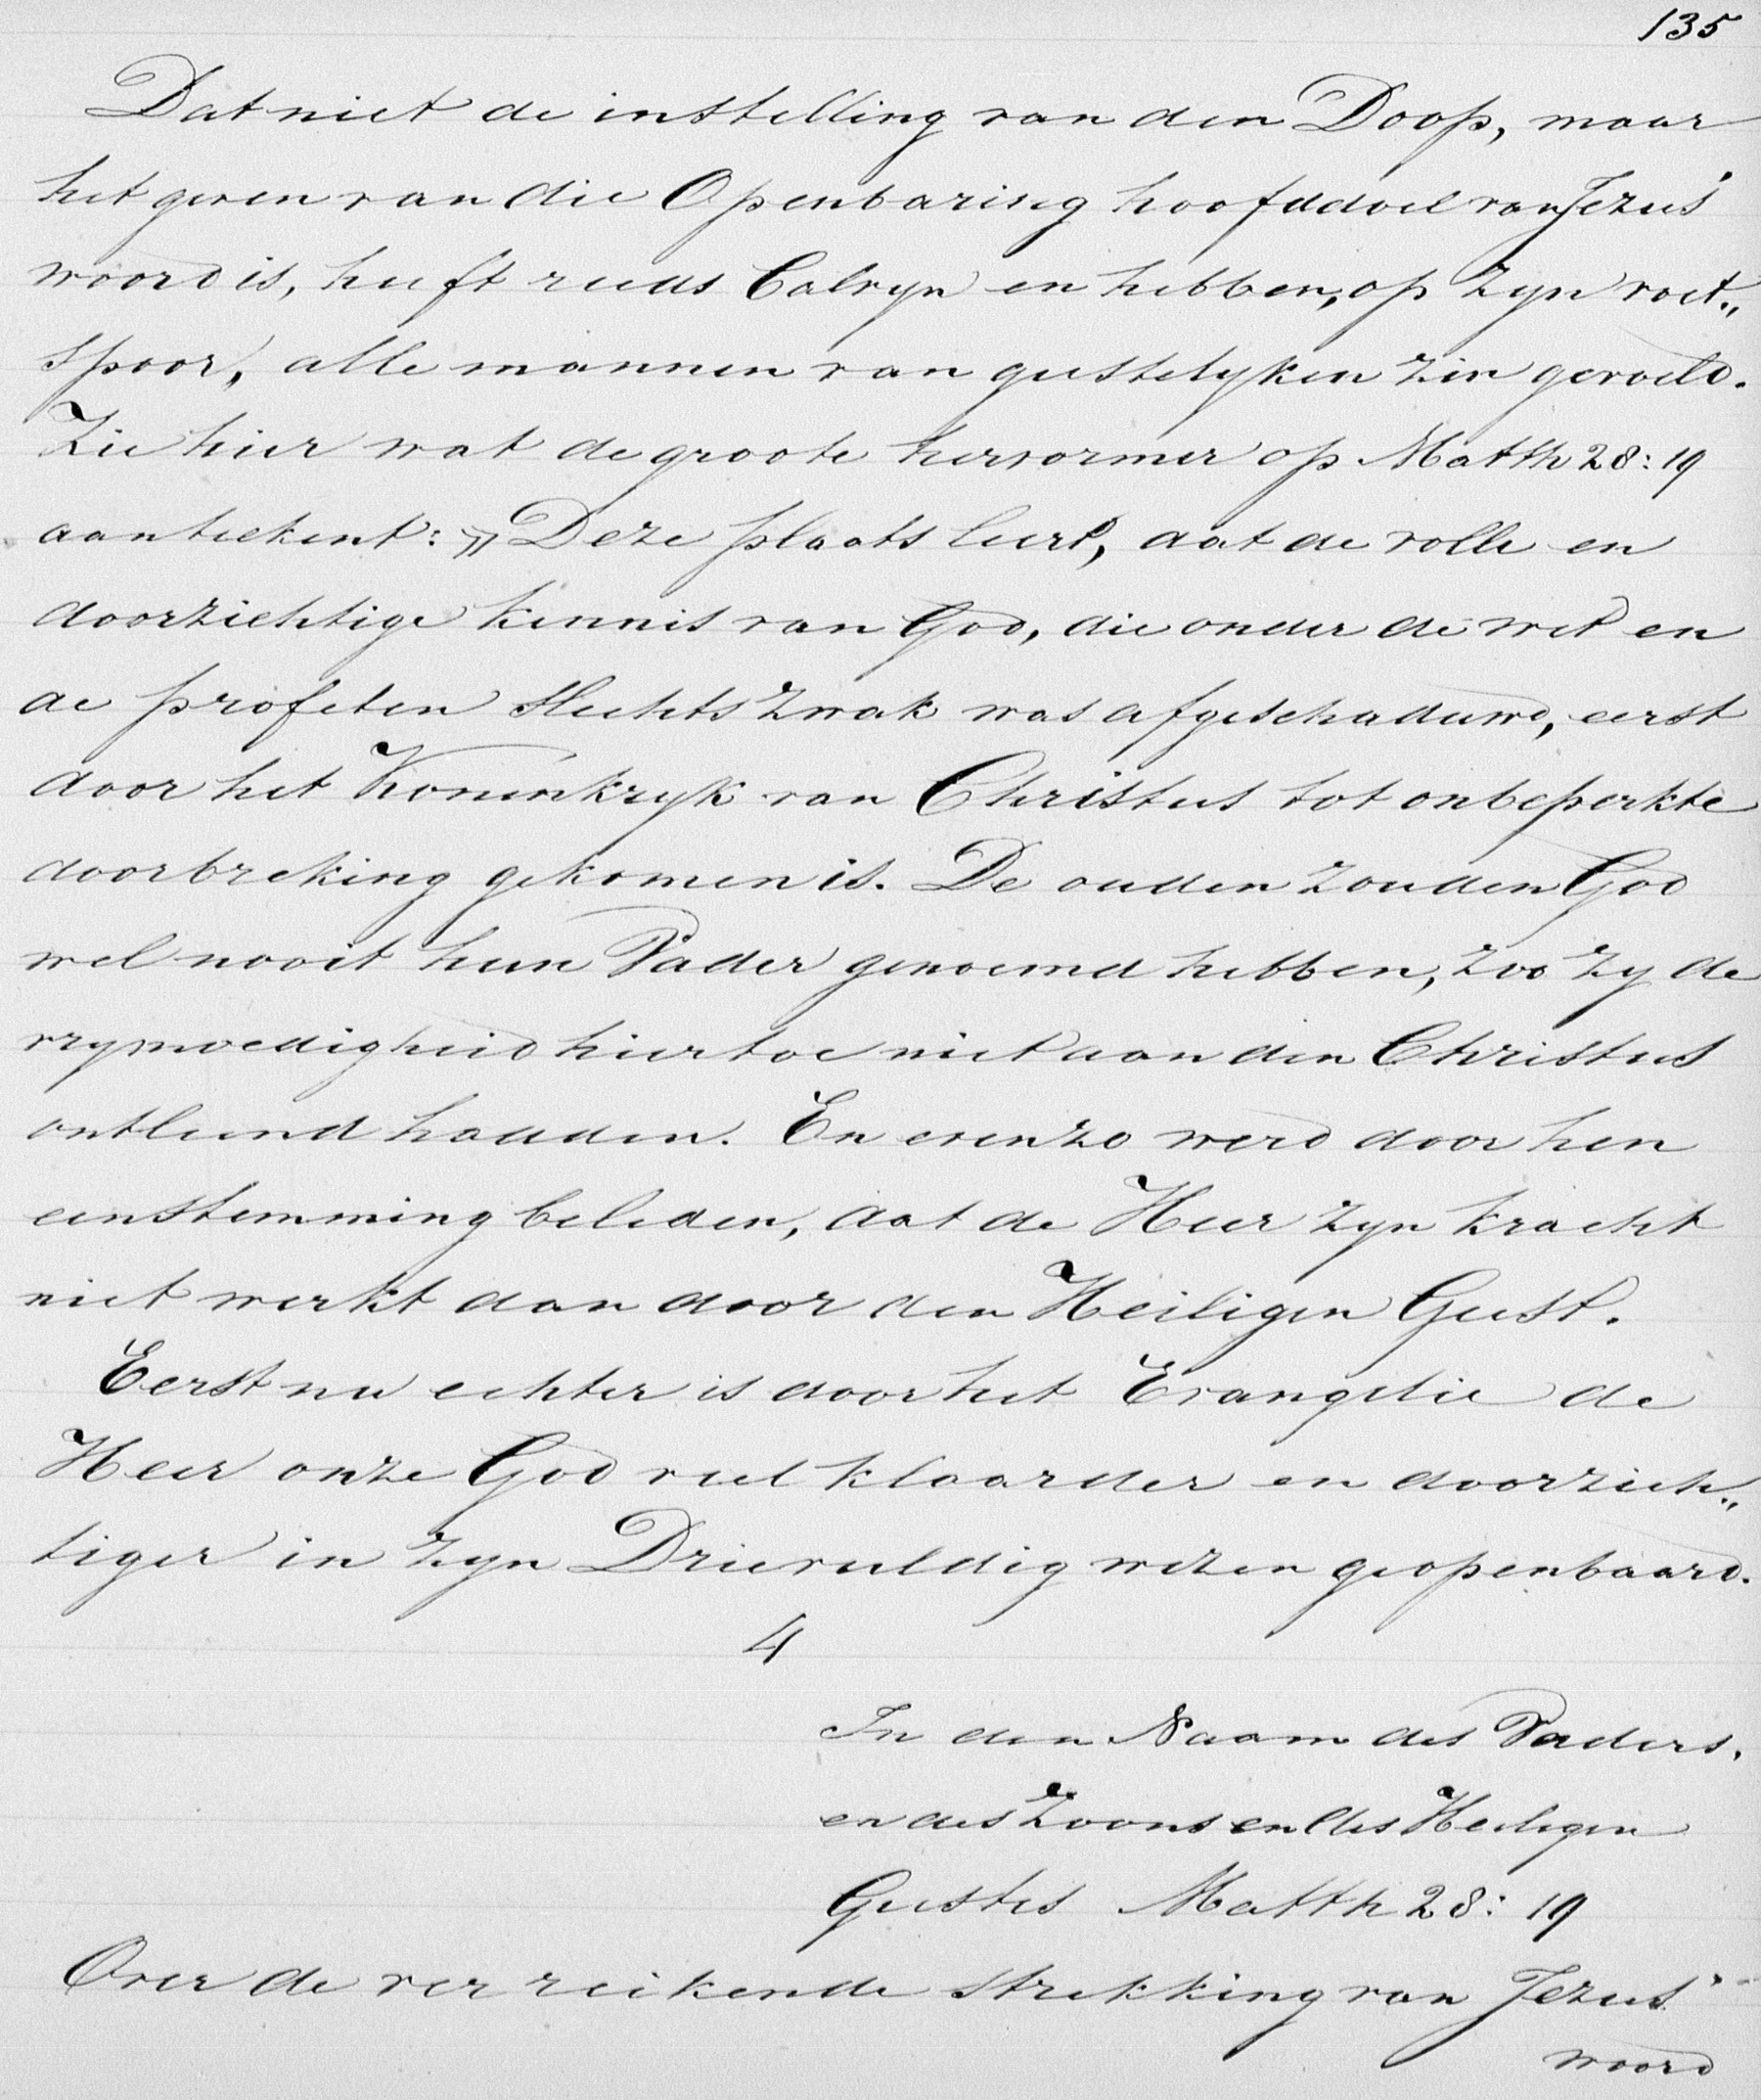 135
Dat niet de instelling van den Doop, maar
het geven van die Openbaring hoofddoel van Jezus'
woord is, heeft reeds Calvyn en hebben, op zyn voet„
spoor, alle mannen van geestelyken zin gevoeld.
Zie hier wat de groote hervormer op Matth 28:19
aanteekent: „Deze plaats leert, dat de volle en
doorzichtige kennis van God, die onder de wet en
de profeten slechts zwak was afgeschaduwd, eerst
door het Koninkryk van Christus tot onbeperkte
doorbreking gekomen is. De ouden zouden God
wel nooit hun Vader genoemd hebben, zoo zy de
vrymoedigheid hiertoe niet aan den Christus
ontleend hadden. En evenzo werd door hen
eenstemming beleden, dat de Heer zyn kracht
niet werkt dan door den Heiligen Geest.
Eerst nu echter is door het Evangelie de
Heer onze God veel klaarder en doorzich„
tiger in zyn Drievuldig wezen geopenbaard.
4
In den Naam des Vaders,
en des Zoons en des Heiligen
Geestes Matth 28:19
Over de verreikende strekking van Jezus'
woord